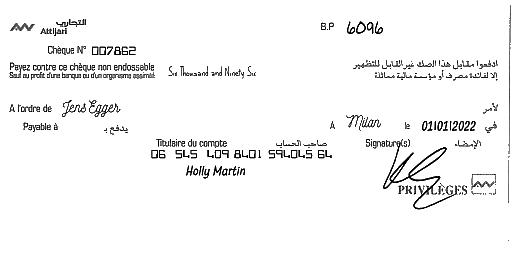 التجاري
Attijari
B.P 6096
Chèque N° 007862
Payez contre ce chèque non endossable
Sauf au profit d'une banque ou d'un organisme assimilé
Six Thousand and Ninety Six
ادفعوا مقابل هذا الصك غير القابل للتظهير
إلا لفائدة مصرف أو مؤسسة مالية مماثلة
A l'ordre de Jens Egger
لأمر
Payable à يدفع بـ
A Milan le 01/01/2022 في
Titulaire du compte صاحب الحساب
Signature(s) الإمضاء
06 545 409 8401 594045 64
Holly Martin
PRIVILÈGES